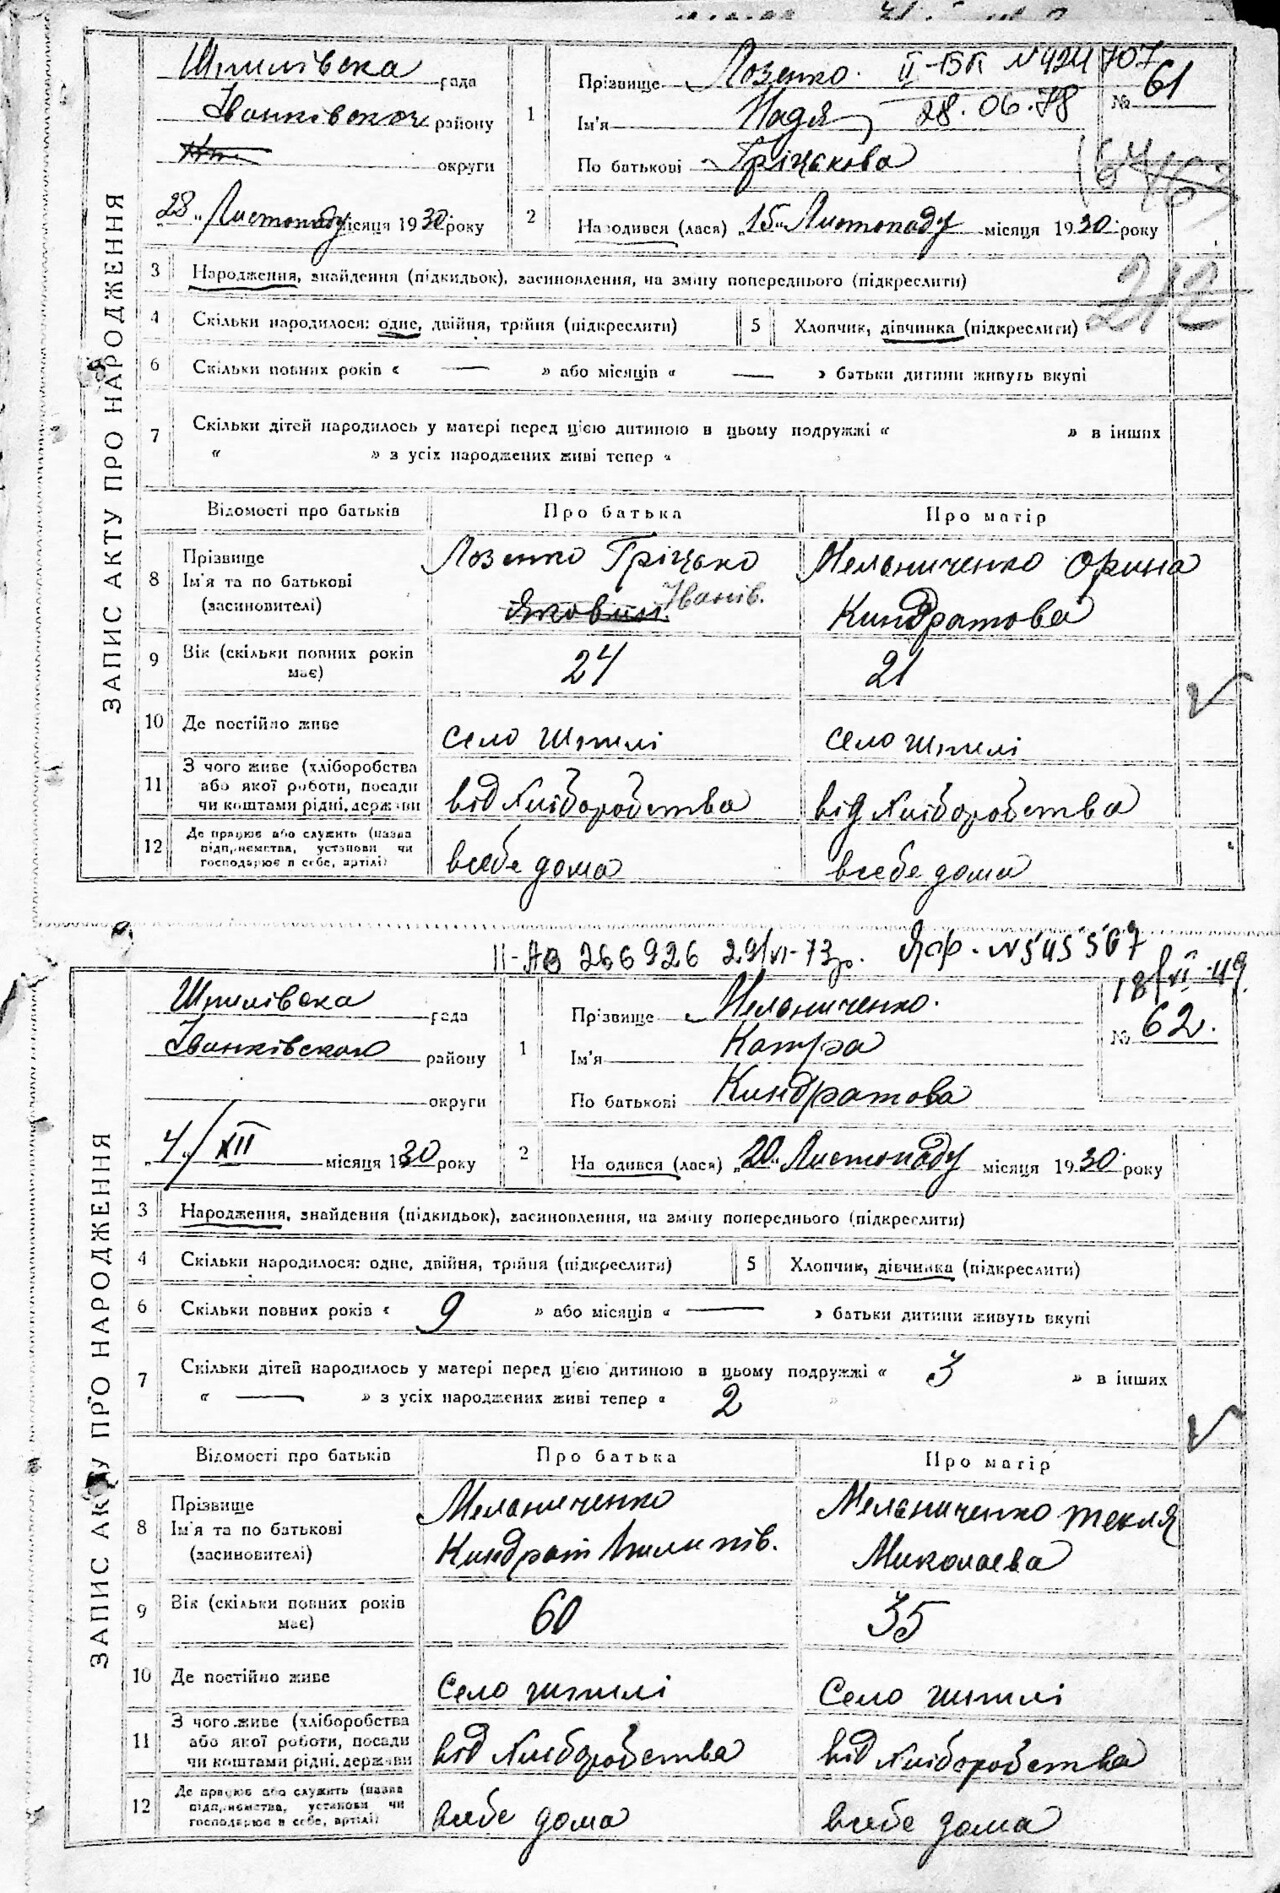 ЗАПИС АКТУ ПРО НАРОДЖЕННЯ
Шпилівска рада
Іванківского району
округи
"28" Листопаду місяця 1930 року
1
Прізвище Лозенко. II-БК №424707
Ім'я Надя 28.06.78
По батькові Гріцькова
№ 61
212
2
Народився (лася) "15" Листопаду місяця 1930 року
3 Народження, знайдення (підкидьок), засиновлення, на зміну попереднього (підкреслити)
4 Скільки народилося: одне, двійня, трійня (підкреслити) 5 Хлопчик, дівчинка (підкреслити)
6 Скільки повних років « — » або місяців « — » батьки дитини живуть вкупі
7 Скільки дітей народилось у матері перед цією дитиною в цьому подружжі « » в інших
« » з усіх народжених живі тепер «
Відомості про батьків Про батька Про матір
8 Прізвище Ім'я та по батькові (засиновителі)
Лозенко Гріцько Мельниченко Орина
Іванів. Киндратова
9 Вік (скільки повних років має) 24 21
10 Де постійно живе село Шпилі село Шпилі
11 З чого живе (хліборобства або якої роботи, посади чи коштами рідні, держави від Хліборобства від Хліборобства
12 Де працює або служить (назва підприємства, установи чи господарює в себе, артілі) всебе дома всебе дома
II-АВ 266926 29/VI-73р. Яф. - №545507
18/VI 49
ЗАПИС АКТУ ПРО НАРОДЖЕННЯ
Шпилівска рада
Іванківского району
округи
"4"/XII місяця 1930 року
1
Прізвище Мельниченко.
Ім'я Катра
По батькові Киндратова
№ 62.
2
Народився (лася) "20" Листопаду місяця 1930 року
3 Народження, знайдення (підкидьок), засиновлення, на зміну попереднього (підкреслити)
4 Скільки народилося: одне, двійня, трійня (підкреслити) 5 Хлопчик, дівчинка (підкреслити)
6 Скільки повних років « 9 » або місяців « — » батьки дитини живуть вкупі
7 Скільки дітей народилось у матері перед цією дитиною в цьому подружжі « 3 » в інших
« — » з усіх народжених живі тепер « 2 »
Відомості про батьків Про батька Про матір
8 Прізвище Ім'я та по батькові (засиновителі)
Мельниченко Мельниченко Текля
Киндрат Пилипів. Миколаева
9 Вік (скільки повних років має) 60 35
10 Де постійно живе Село Шпилі Село Шпилі
11 З чого живе (хліборобства або якої роботи, посади чи коштами рідні, держави від Хліборобства від Хліборобства
12 Де працює або служить (назва підприємства, установи чи господарює в себе, артілі) всебе дома всебе дома